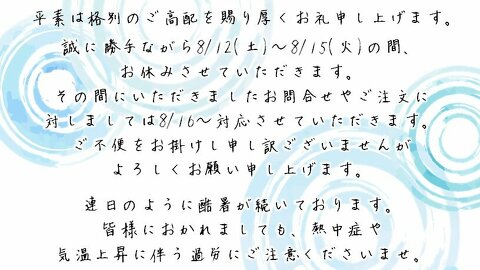 平素は格別のご高配を賜り厚くお礼申し上げます。
誠に勝手ながら8/12(土)～8/15(火)の間、
お休みさせていただきます。
その間にいただきましたお問合せやご注文に
対しましては8/16～対応させていただきます。
ご不便をお掛けし申し訳ございませんが
よろしくお願い申し上げます。
連日のように酷暑が続いております。
皆様におかれましても、熱中症や
気温上昇に伴う過労にご注意くださいませ。